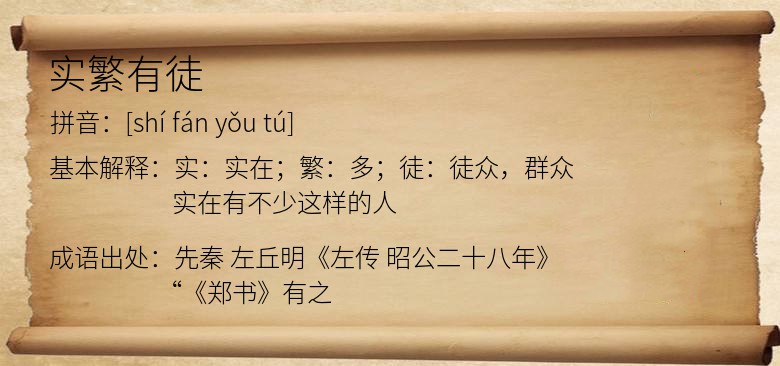 实繁有徒
拼音：[shí fán yǒu tú]
基本解释：实：实在；繁：多；徒：徒众，群众
实在有不少这样的人
成语出处：先秦 左丘明《左传 昭公二十八年》
“《郑书》有之